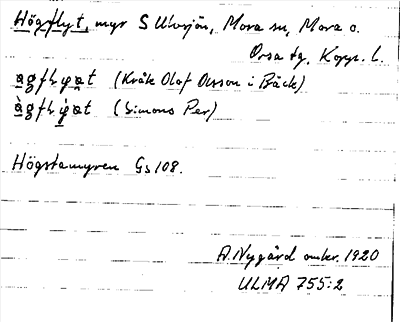 Högflyt, myr S Ulvsjön, Mora sn, Mora o.
Orsa tg, Kopp. l.
(Kråk Olof Olsson i Bäck)
(Simons Per)
Högstamyren Gs 108.
A. Nygård omkr. 1920
ULMA 755:2